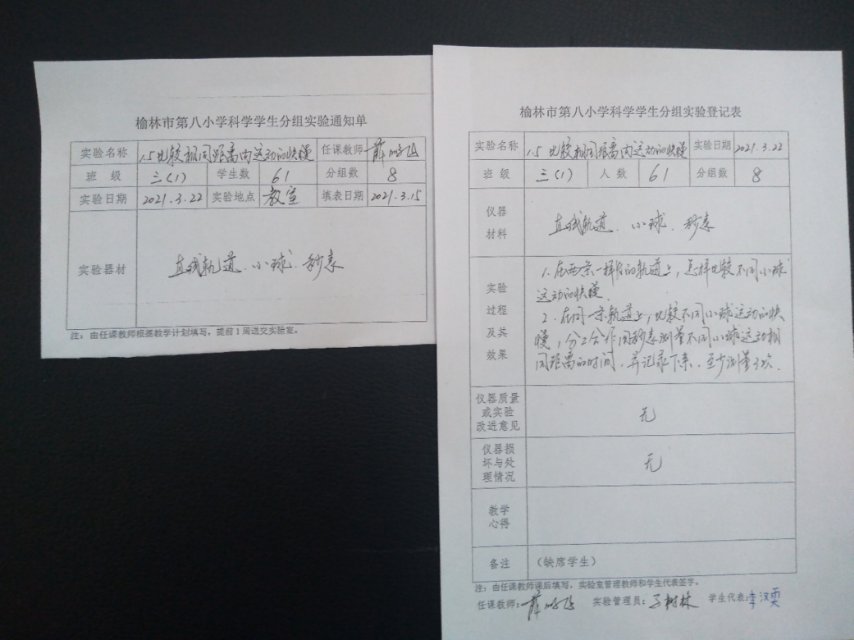 榆林市第八小学科学学生分组实验通知单
实验名称 1.5比较相同距离内运动的快慢 任课教师 薛
班 级 三(1) 学生数 61 分组数 8
实验日期 2021.3.22 实验地点 教室 填表日期 2021.3.15
实验器材 直线轨道、小球、秒表
注：由任课教师根据教学计划填写，提前1周送交实验室。
榆林市第八小学科学学生分组实验登记表
实验名称 1.5 比较相同距离内运动的快慢 实验日期 2021.3.22
班 级 三(1) 人 数 61 分组数 8
仪器
材料
直线轨道、小球、秒表
实验
过程
及其
效果
1.在两条一样长的轨道上，怎样比较不同小球
运动的快慢。
2.在同一条轨道上，比较不同小球运动的快
慢，分工合作用秒表测量不同小球运动相
同距离的时间，并记录下来，至少测量3次。
仪器质量
或实验
改进意见
无
仪器损
坏与处
理情况
无
教学
心得
备注 （缺席学生）
注：由任课教师课后填写，实验室管理教师和学生代表签字。
任课教师：薛 实验管理员：树林 学生代表：李汉